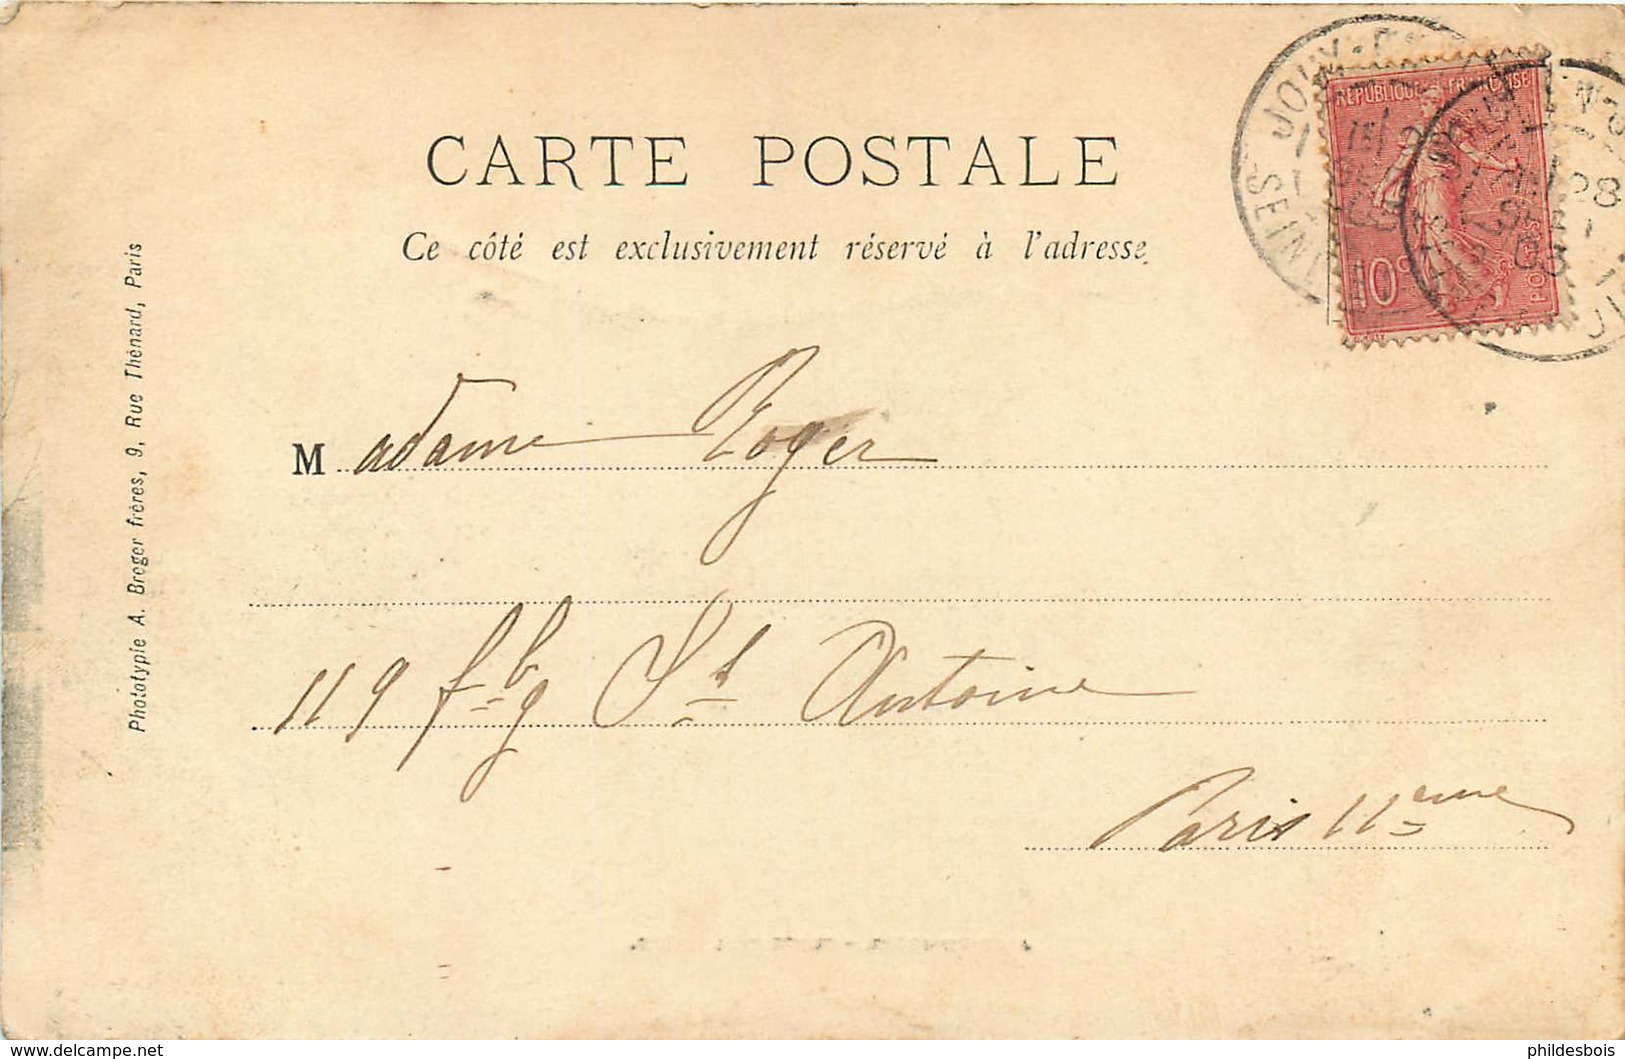 CARTE POSTALE
Ce côté est exclusivement réservé à l'adresse
RÉPUBLIQUE FRANÇAISE
10c
POSTES
JOUY
SEINE
28
03
Phototypie A. Breger frères, 9, Rue Thénard, Paris
Madame Roger
119 fbg St Antoine
Paris 11eme
phildesbois